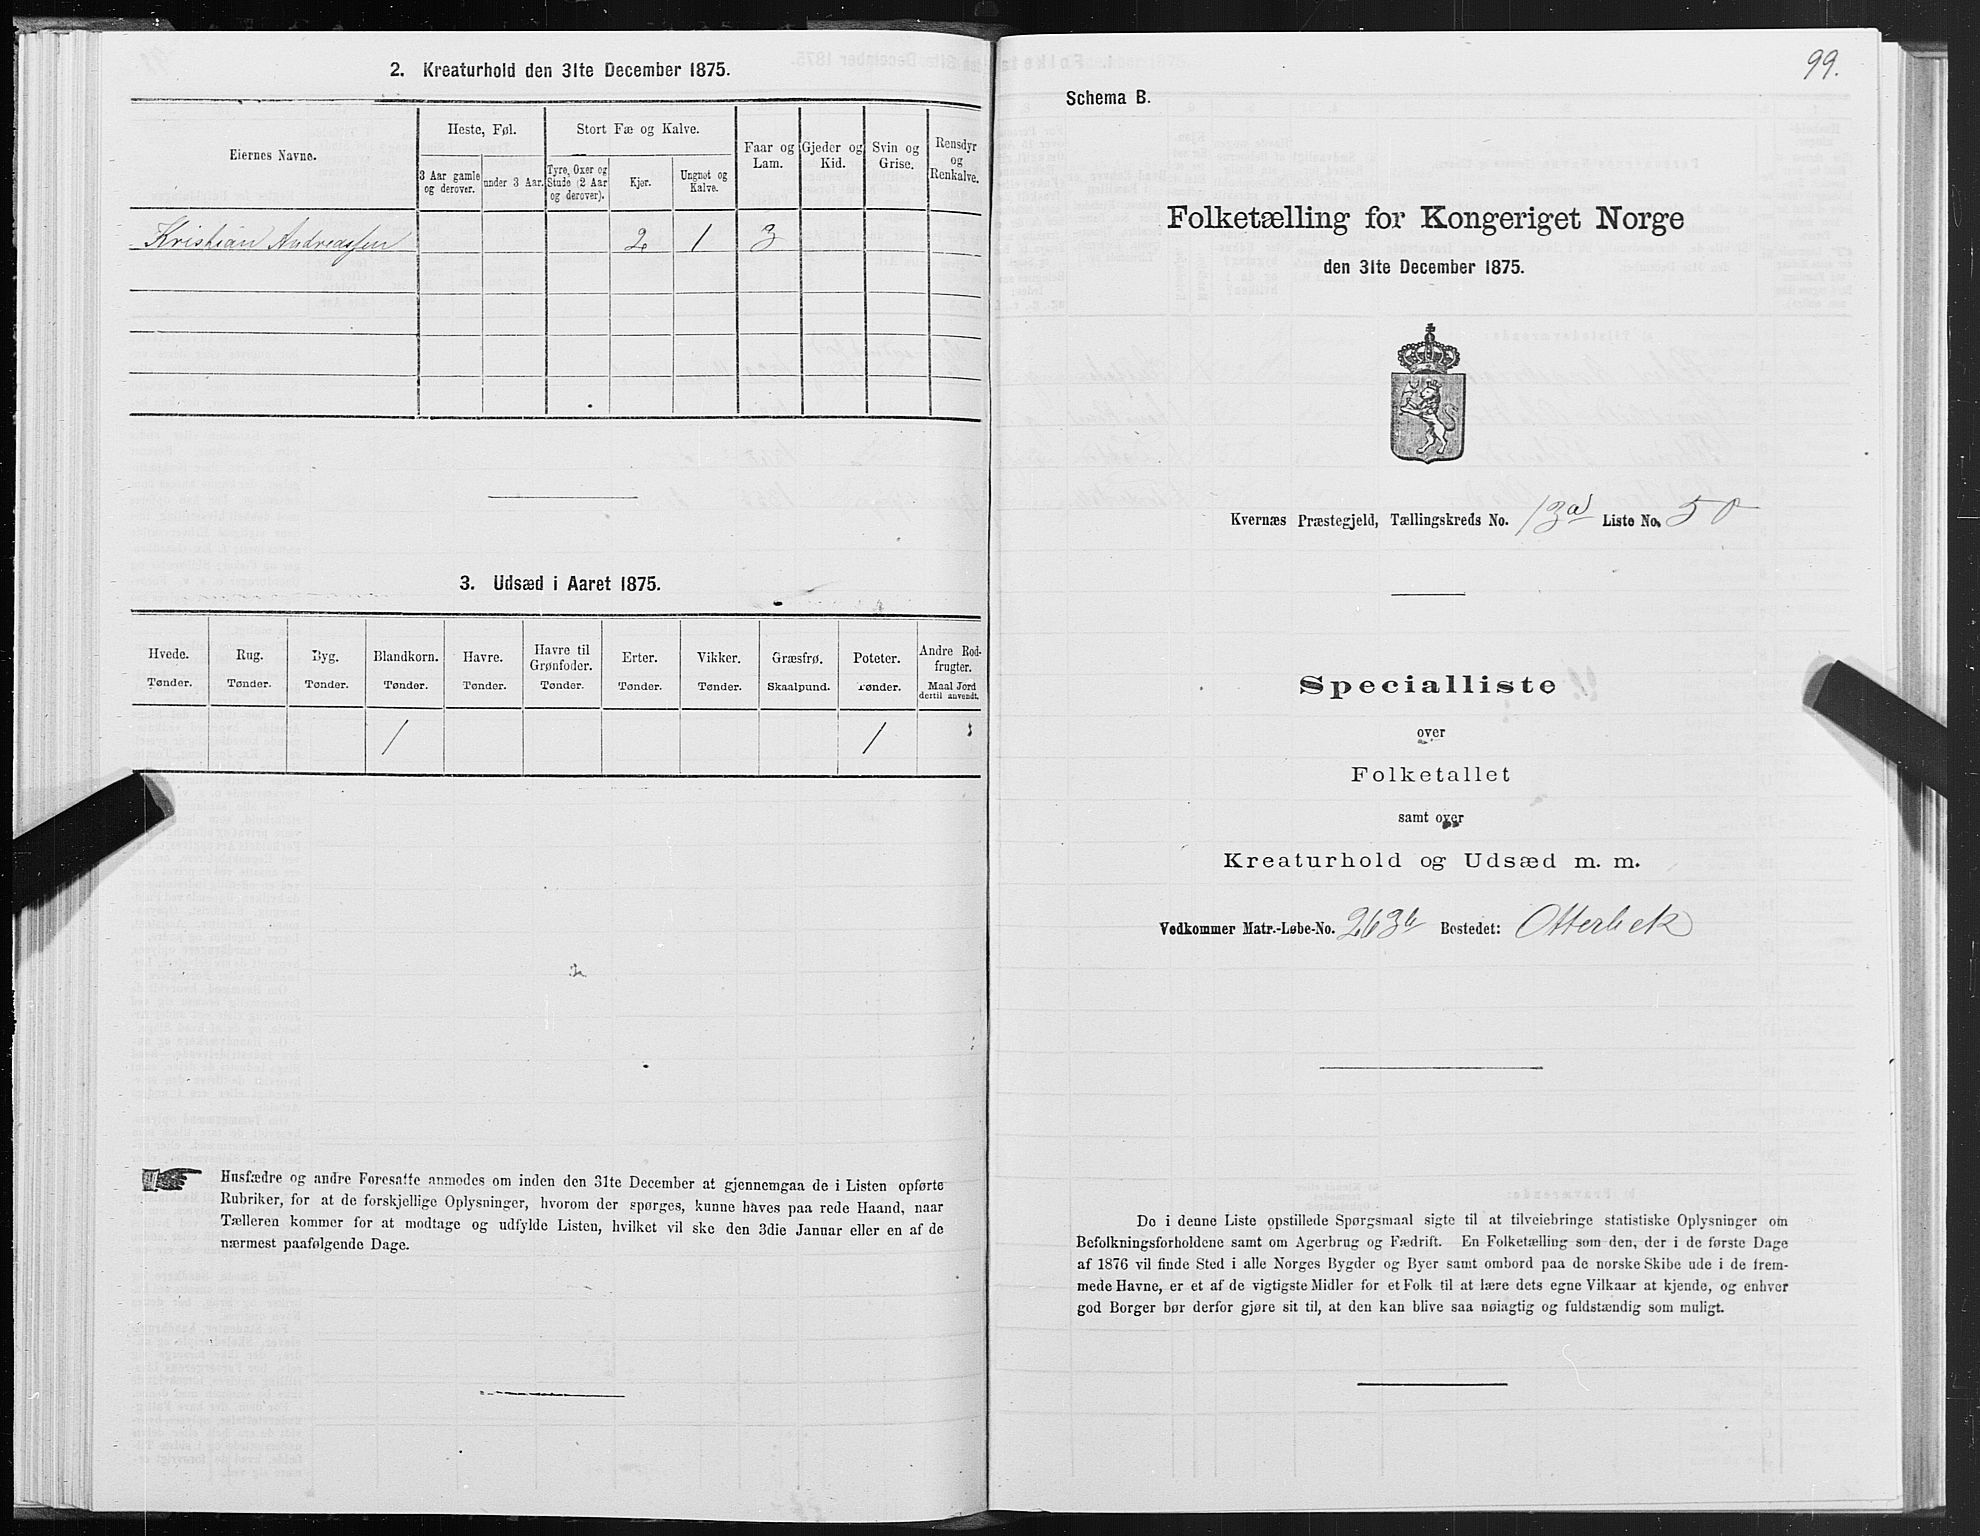 2. Kreaturhold den 31te December 1875.
Eiernes Navne.
Heste, Føl.
3 Aar gamle og derover.
under 3 Aar.
Stort Fæ og Kalve.
Tyre, Oxer og Stude (2 Aar og derover).
Kjør.
Ungnøt og Kalve.
Faar og Lam.
Gjeder og Kid.
Svin og Grise.
Rensdyr og Renkalve.
Kristian Andreassen 2 1 3
3. Udsæd i Aaret 1875.
Hvede. Rug. Byg. Blandkorn. Havre. Havre til Grønfoder. Erter. Vikker. Græsfrø. Poteter. Andre Rodfrugter.
Tønder. Tønder. Tønder. Tønder. Tønder. Tønder. Tønder. Tønder. Skaalpund. Tønder. Maal Jord dertil anvendt.
1 1
Husfædre og andre Foresatte anmodes om inden den 31te December at gjennemgaa de i Listen opførte
Rubriker, for at de forskjellige Oplysninger, hvorom der spørges, kunne haves paa rede Haand, naar
Tælleren kommer for at modtage og udfylde Listen, hvilket vil ske den 3die Januar eller en af de
nærmest paafølgende Dage.
99.
Schema B.
Folketælling for Kongeriget Norge
den 31te December 1875.
Kvernæs Præstegjeld, Tællingskreds No. 13a Liste No. 50
Specialliste
over
Folketallet
samt over
Kreaturhold og Udsæd m. m.
Vedkommer Matr.-Løbe-No. 263b Bostedet: Otterbek
De i denne Liste opstillede Spørgsmaal sigte til at tilveiebringe statistiske Oplysninger om
Befolkningsforholdene samt om Agerbrug og Fædrift. En Folketælling som den, der i de første Dage
af 1876 vil finde Sted i alle Norges Bygder og Byer samt ombord paa de norske Skibe ude i de frem-
mede Havne, er et af de vigtigste Midler for et Folk til at lære dets egne Vilkaar at kjende, og enhver
god Borger bør derfor gjøre sit til, at den kan blive saa nøiagtig og fuldstændig som muligt.